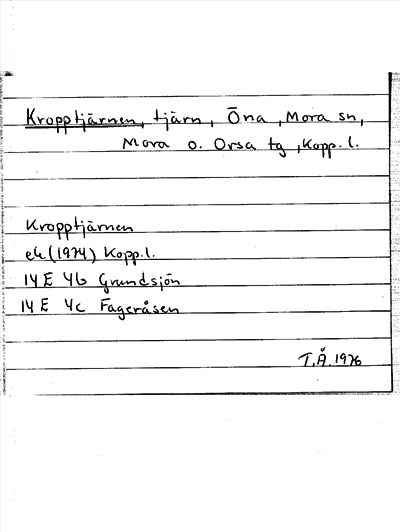 Kropptjärnen, tjärn, Öna, Mora sn,
Mora o. Orsa tg, Kopp. l.
Kropptjärnen
ek (1974) Kopp. l.
14 E 4b Grundsjön
14 E 4c Fageråsen
T.Å. 1976